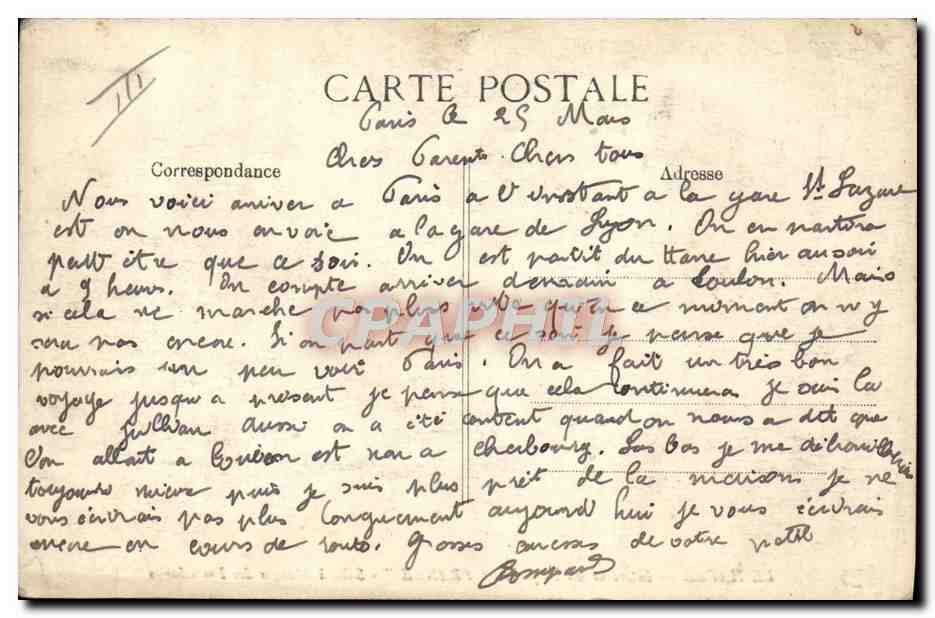 III
CARTE POSTALE
Paris le 25 Mars
Chers Parents Chers tous
Correspondance
Adresse
Nous voici arriver a Paris a l'instant a la gare St Lazare
est on nous envoie a la gare de Lyon. On en partira
peut être que ce soir. On est partit du Havre hier au soir
a 9 heures. On compte arriver demain a Toulon. Mais
si cela ne marche pas plus vite qu'en ce moment on n'y
sera pas encore. Si on part que ce soir je pense que je
pourrais un peu voir Paris. On a fait un très bon
voyage jusqu'a present je pense que cela continuera je suis la
avec Jullian aussi on a été content quand on nous a dit que
l'on allait a Toulon est non a Cherbourg. Las bas je me debrouillerais
toujours mieux puis je suis plus près de la maison je ne
vous écrirais pas plus longuement aujourd hui je vous écrirais
encore en cours de route. Grosses caresses de votre petit
CPAPHIL